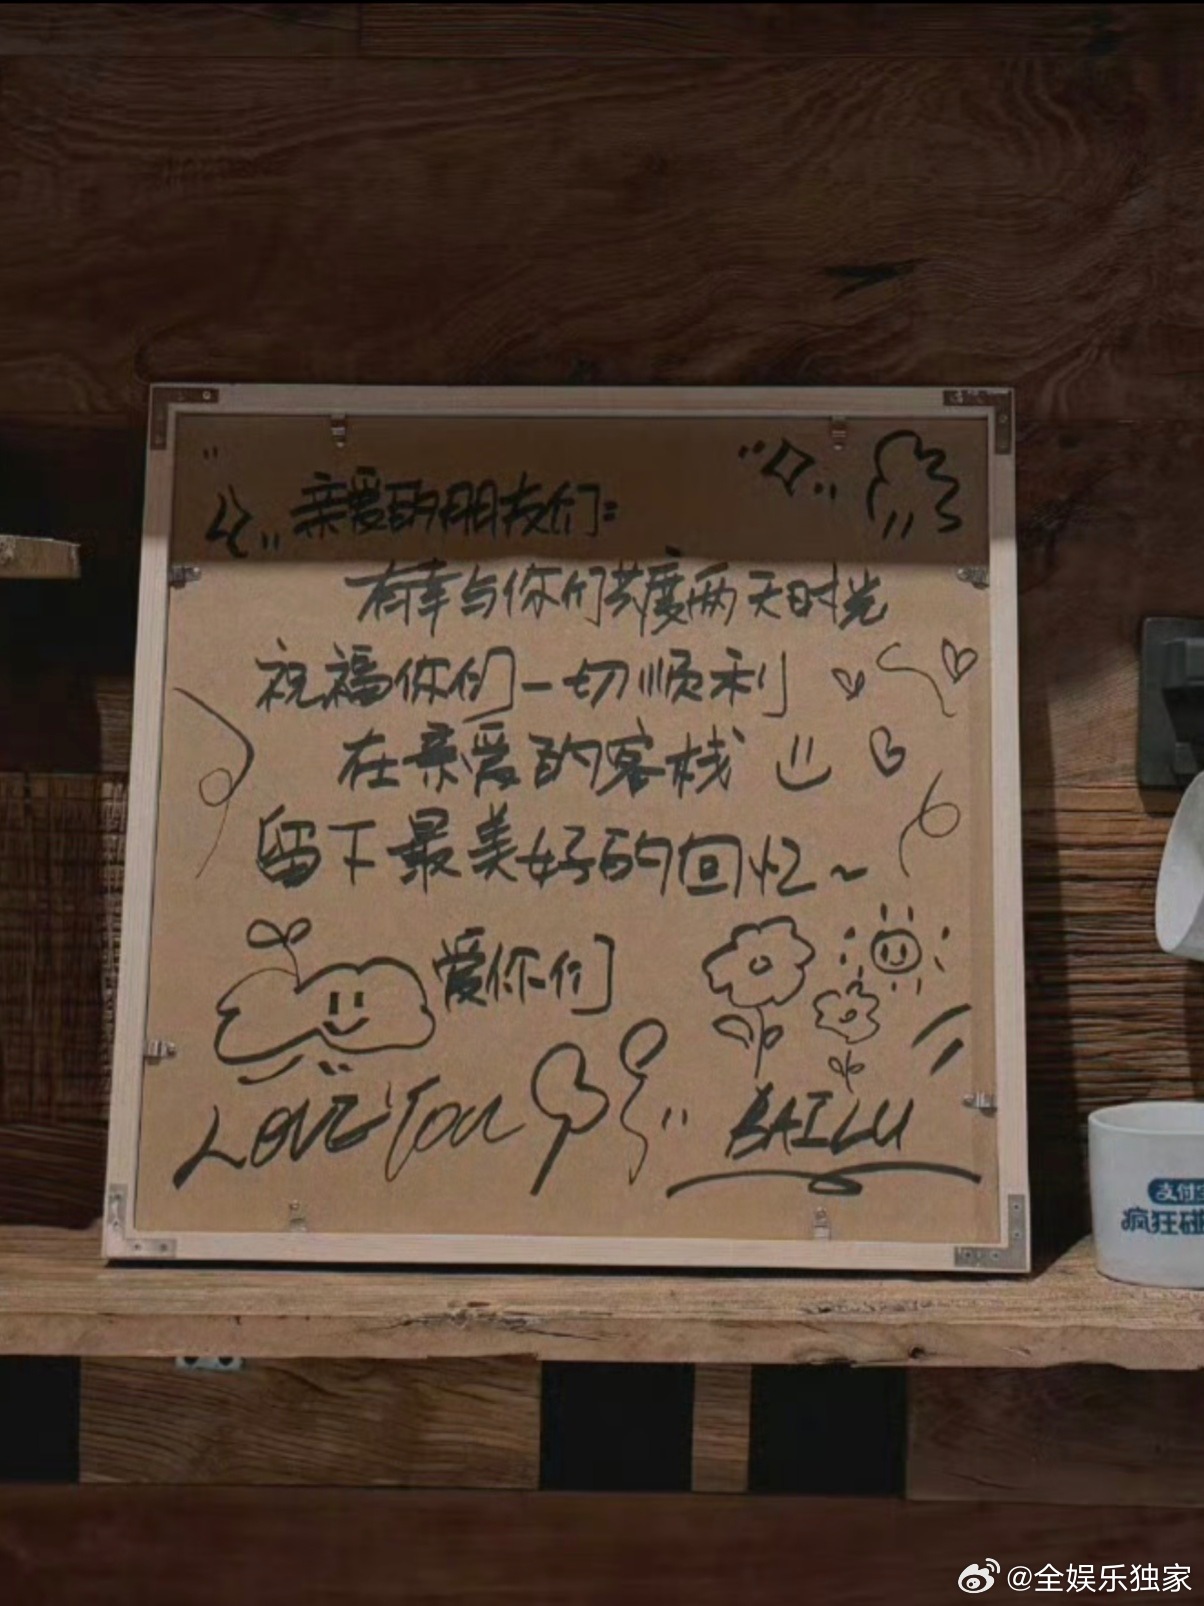 亲爱的朋友们:
有幸与你们共度两天时光
祝福你们一切顺利
在亲爱的客栈
留下最美好的回忆~
爱你们
LOVE You
BAILU
支付
疯狂碰
@全娱乐独家